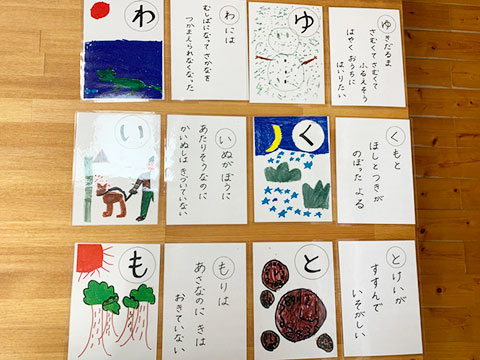 わ
わには
むしばになって さかなを
つかまえられなくなった
ゆ
ゆきだるま
さむくて さむくて
ふるえそう
はやく おうちに
はいりたい
い
いぬがぼうに
あたりそうなのに
かいぬしは きづいていない
く
くもと
ほしとつきが
のぼった よる
も
もりは
あさなのに きは
おきていない
と
とけいが
すすんで
いそがしい